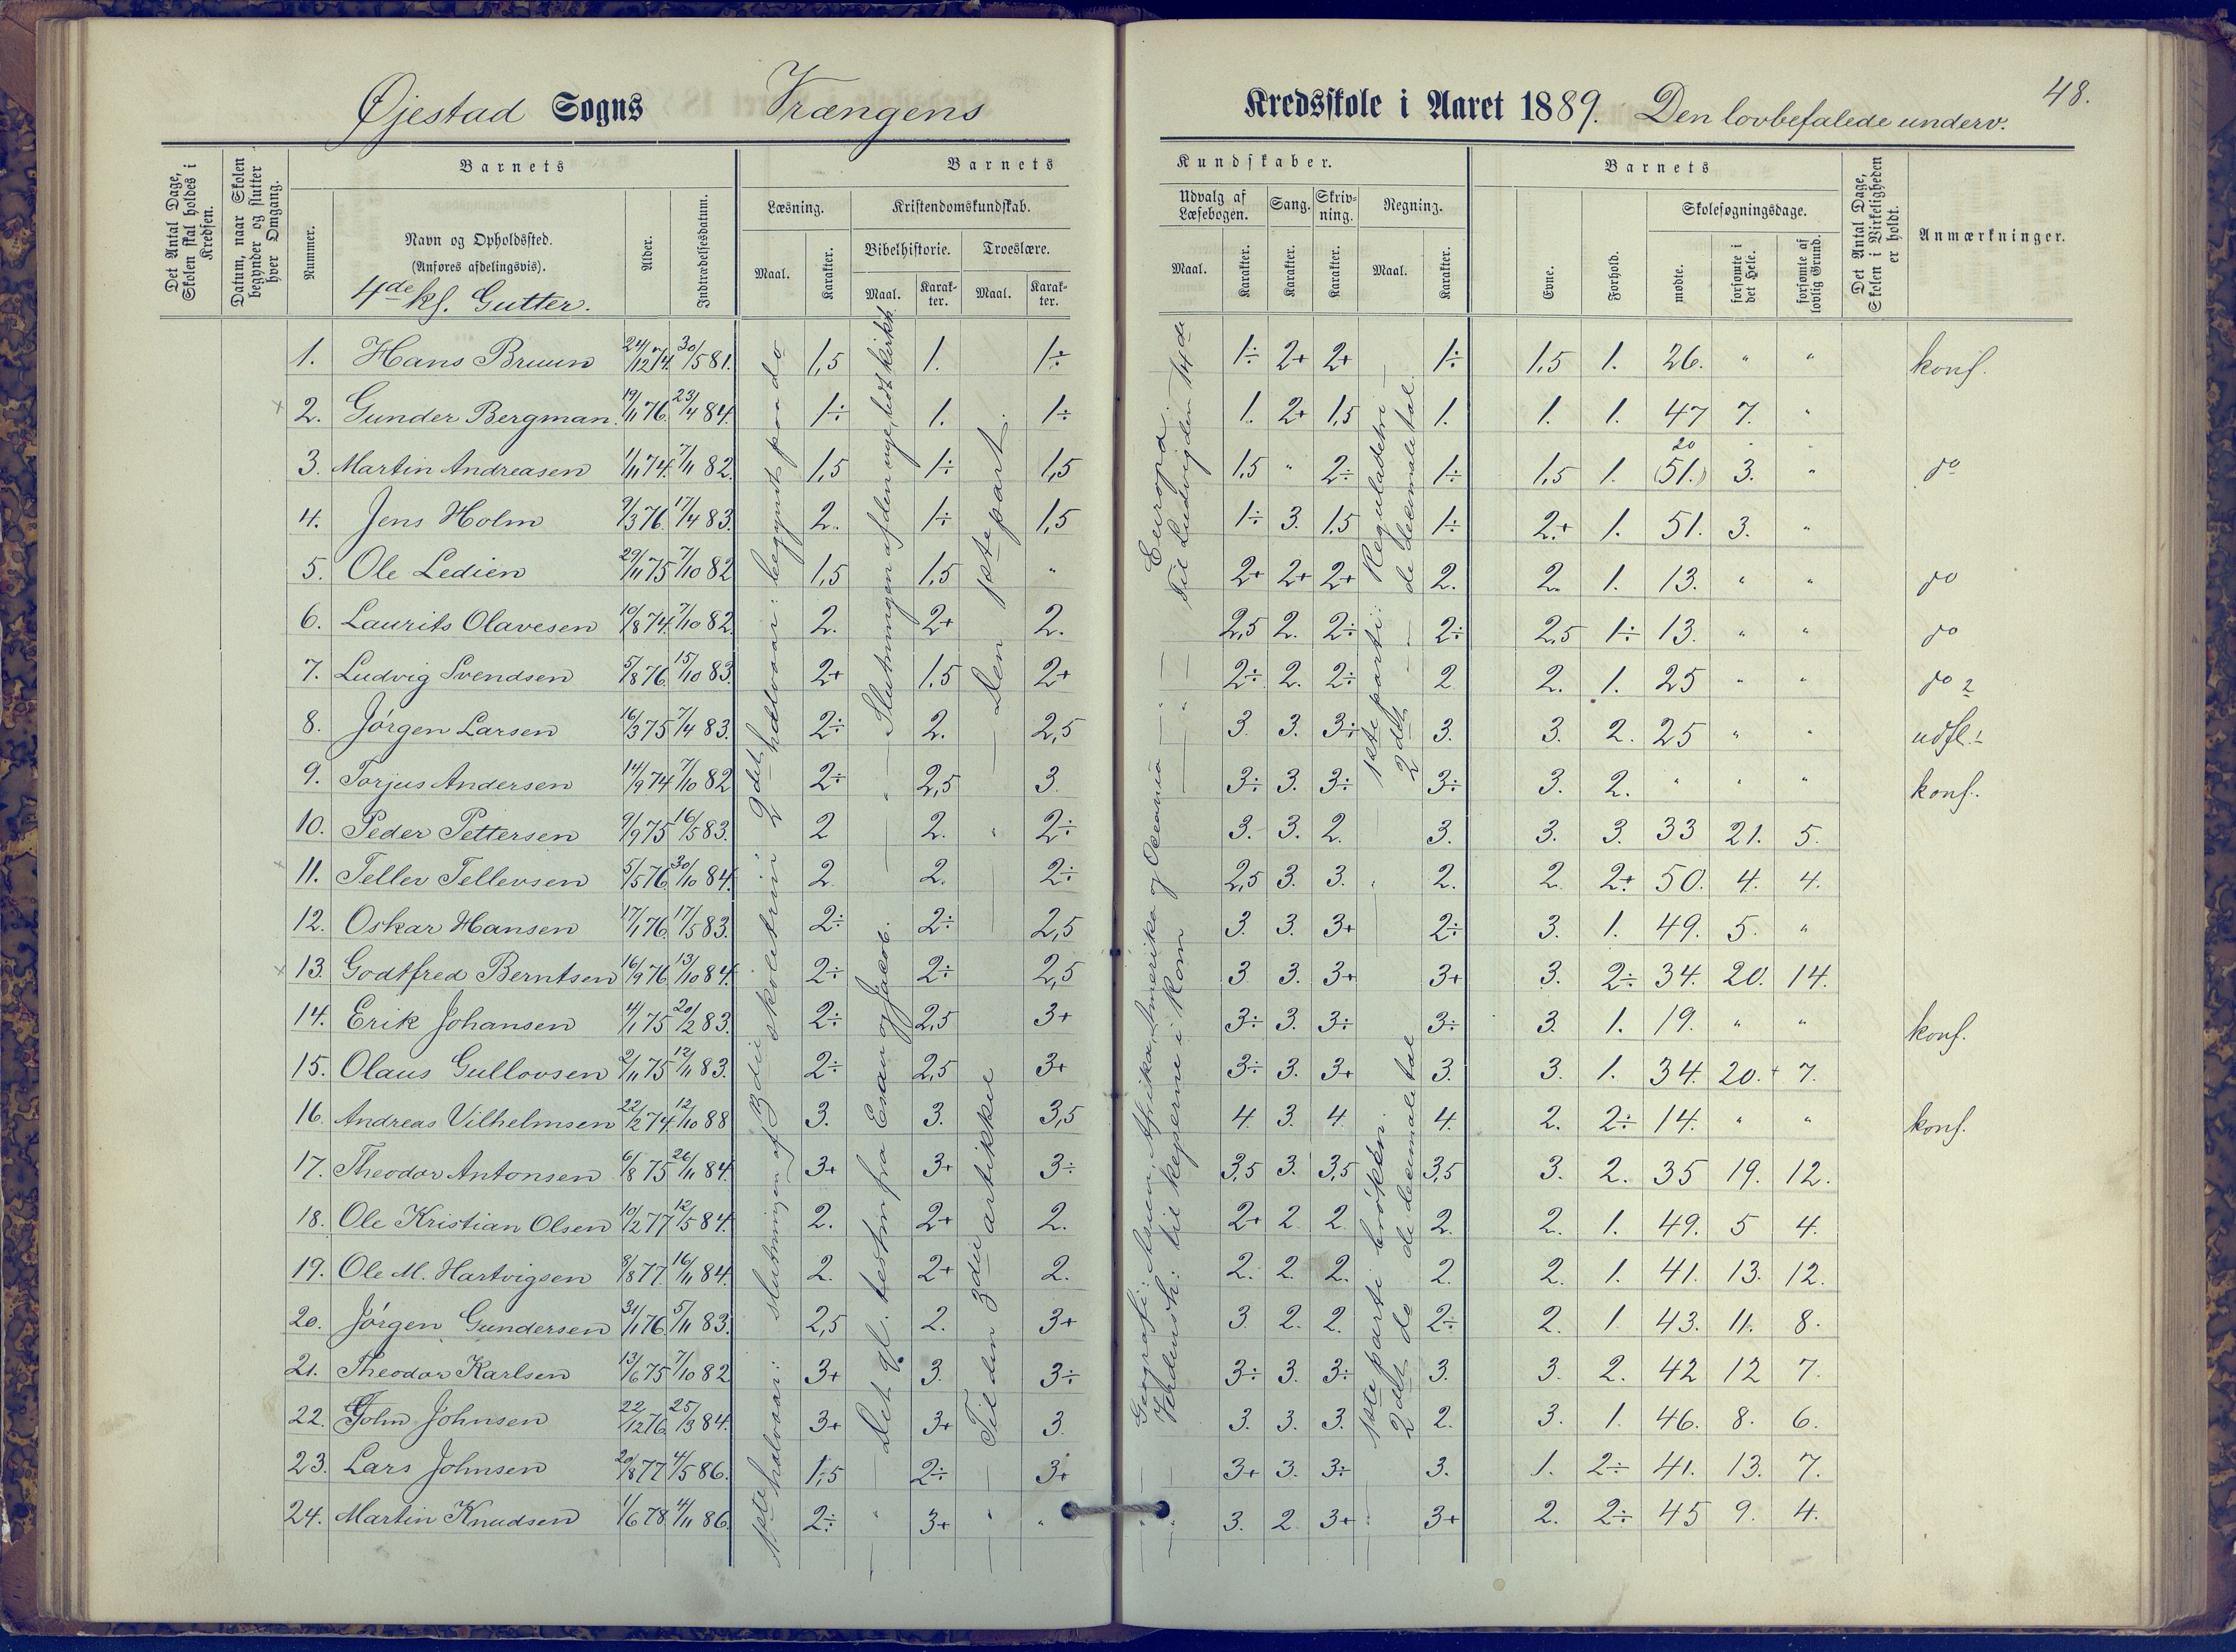 Øjestad Sogns Vrængens Kredsskole i Aaret 1889. Den lovbefalede underv. 48.
Det Antal Dage, Skolen skal holdes i Kredsen.
Datum, naar Skolen begynder og slutter hver Omgang.
Barnets
Nummer.
Navn og Opholdssted.
(Anføres afdelingsvis).
4de kl. Gutter.
Alder.
Indtrædelsesdatum.
Barnets Kundskaber.
Læsning.
Maal.
Karakter.
Kristendomskundskab.
Bibelhistorie.
Maal.
Karakter.
Troeslære.
Maal.
Karakter.
Udvalg af Læsebogen.
Maal.
Karakter.
Sang.
Karakter.
Skrivning.
Karakter.
Regning.
Maal.
Karakter.
Barnets
Evne.
Forhold.
Skolesøgningsdage.
mødte.
forsømte i det Hele.
forsømte af lovlig Grund.
Det Antal Dage, Skolen i Virkeligheden er holdt.
Anmærkninger.
1. Hans Bruun 24/12 74. 30/5 81. 1,5 1. 1÷ 1÷ 2+ 2+ 1÷ 1,5 1. 26. " " konf.
2. Gunder Bergman. 19/11 76. 23/4 84. 1÷ 1. 1÷ 1. 2+ 1,5 1. 1. 1. 47 7. "
3. Martin Andreasen 1/11 74. 7/11 82. 1,5 1÷ 1,5 1,5 " 2÷ 1÷ 1,5 1. 20 (51.) 3. " do
4. Jens Holm 9/3 76. 17/4 83. 2. 1÷ 1,5 1÷ 3. 1,5 1÷ 2.+ 1. 51. 3. "
5. Ole Ledien 29/11 75 7/10 82 1,5 1,5 " 2+ 2+ 2+ 2. 2. 1. 13. " " do
6. Laurits Olavesen 10/8 74. 7/10 82. 2. 2+ 2. 2,5 2. 2÷ 2÷ 2,5 1÷ 13. " " do
7. Ludvig Svendsen 5/8 76. 15/10 83. 2+ 1,5 2+ 2÷ 2. 2÷ 2 2. 1. 25 " " do 2
8. Jørgen Larsen 16/3 75 7/4 83. 2÷ 2. 2,5 3. 3. 3÷ 3. 3. 2. 25 " " udfl.
9. Torjus Andersen 14/9 74 7/10 82 2÷ 2,5 3. 3÷ 3. 3÷ 3÷ 3. 2. " " " konf.
10. Peder Pettersen 9/9 75 16/5 83. 2 2. 2÷ 3. 3. 2. 3. 3. 3. 33 21. 5.
11. Tellev Tellevsen 5/5 76. 30/10 84. 2. 2. 2÷ 2,5 3. 3. 2. 2. 2+ 50. 4. 4.
12. Oskar Hansen 17/1 76. 17/5 83. 2÷ 2÷ 2,5 3. 3. 3+ 2÷ 3. 1. 49. 5. "
13. Godtfred Berntsen 16/9 76 13/10 84. 2÷ 2÷ 2,5 3 3. 3+ 3+ 3. 2÷ 34. 20. 14.
14. Erik Johansen 4/1 75 20/2 83. 2÷ 2,5 3+ 3÷ 3. 3÷ 3÷ 3. 1. 19. " " konf.
15. Olaus Gullovsen 2/11 75 12/11 83. 2÷ 2,5 3+ 3÷ 3. 3+ 3. 3. 1. 34. 20. 7.
16. Andreas Vilhelmsen 22/2 74. 12/10 88 3. 3. 3,5 4. 3. 4. 4. 2. 2÷ 14. " " konf.
17. Theodor Antonsen 6/8 75 26/11 84. 3+ 3+ 3÷ 3,5 3. 3,5 3,5 3. 2. 35 19. 12.
18. Ole Kristian Olsen 10/2 77 12/5 84. 2. 2+ 2. 2+ 2 2. 2. 2. 1. 49. 5 4.
19. Ole M. Hartvigsen 9/8 77. 16/11 84. 2. 2+ 2. 2. 2. 2. 2. 2. 1. 41. 13. 12.
20. Jørgen Gundersen 31/1 76. 5/11 83. 2,5 2. 3+ 3 2. 2. 2÷ 2. 1. 43. 11. 8.
21. Theodor Karlsen 13/6 75 7/10 82 3+ 3. 3÷ 3÷ 3. 3÷ 3. 3. 2. 42 12 7.
22. John Johnsen 22/12 76. 25/3 84. 3+ 3+ 3. 3. 3. 3. 2. 3. 1. 46. 8. 6.
23. Lars Johnsen 20/8 77 4/5 86. 1,5 2÷ 3+ 3+ 3. 3÷ 3. 1. 2÷ 41. 13. 7.
24. Martin Knudsen 1/6 78. 4/11 86. 2÷ 3+ " 3. 2 3+ 3+ 2. 2÷ 45 9. 4.
1ste halvaar: slutningen af 3die skoletrin
2det halvaar: begynt paa do
Det gl. testm fra Esau og Jacob.
Slutningen af den nye, lidt kirkh
Til den 3die artikkel
Den 1ste part.
Geografi: Asien, Afrika, Amerika og Oceania — Europa.
Verdensh: til keiserne i Rom — Til Ludvig den 14de
1ste parti brøken.
2det do de decimale tal
1ste parti: Reguladetri
2det — de decimale tal.